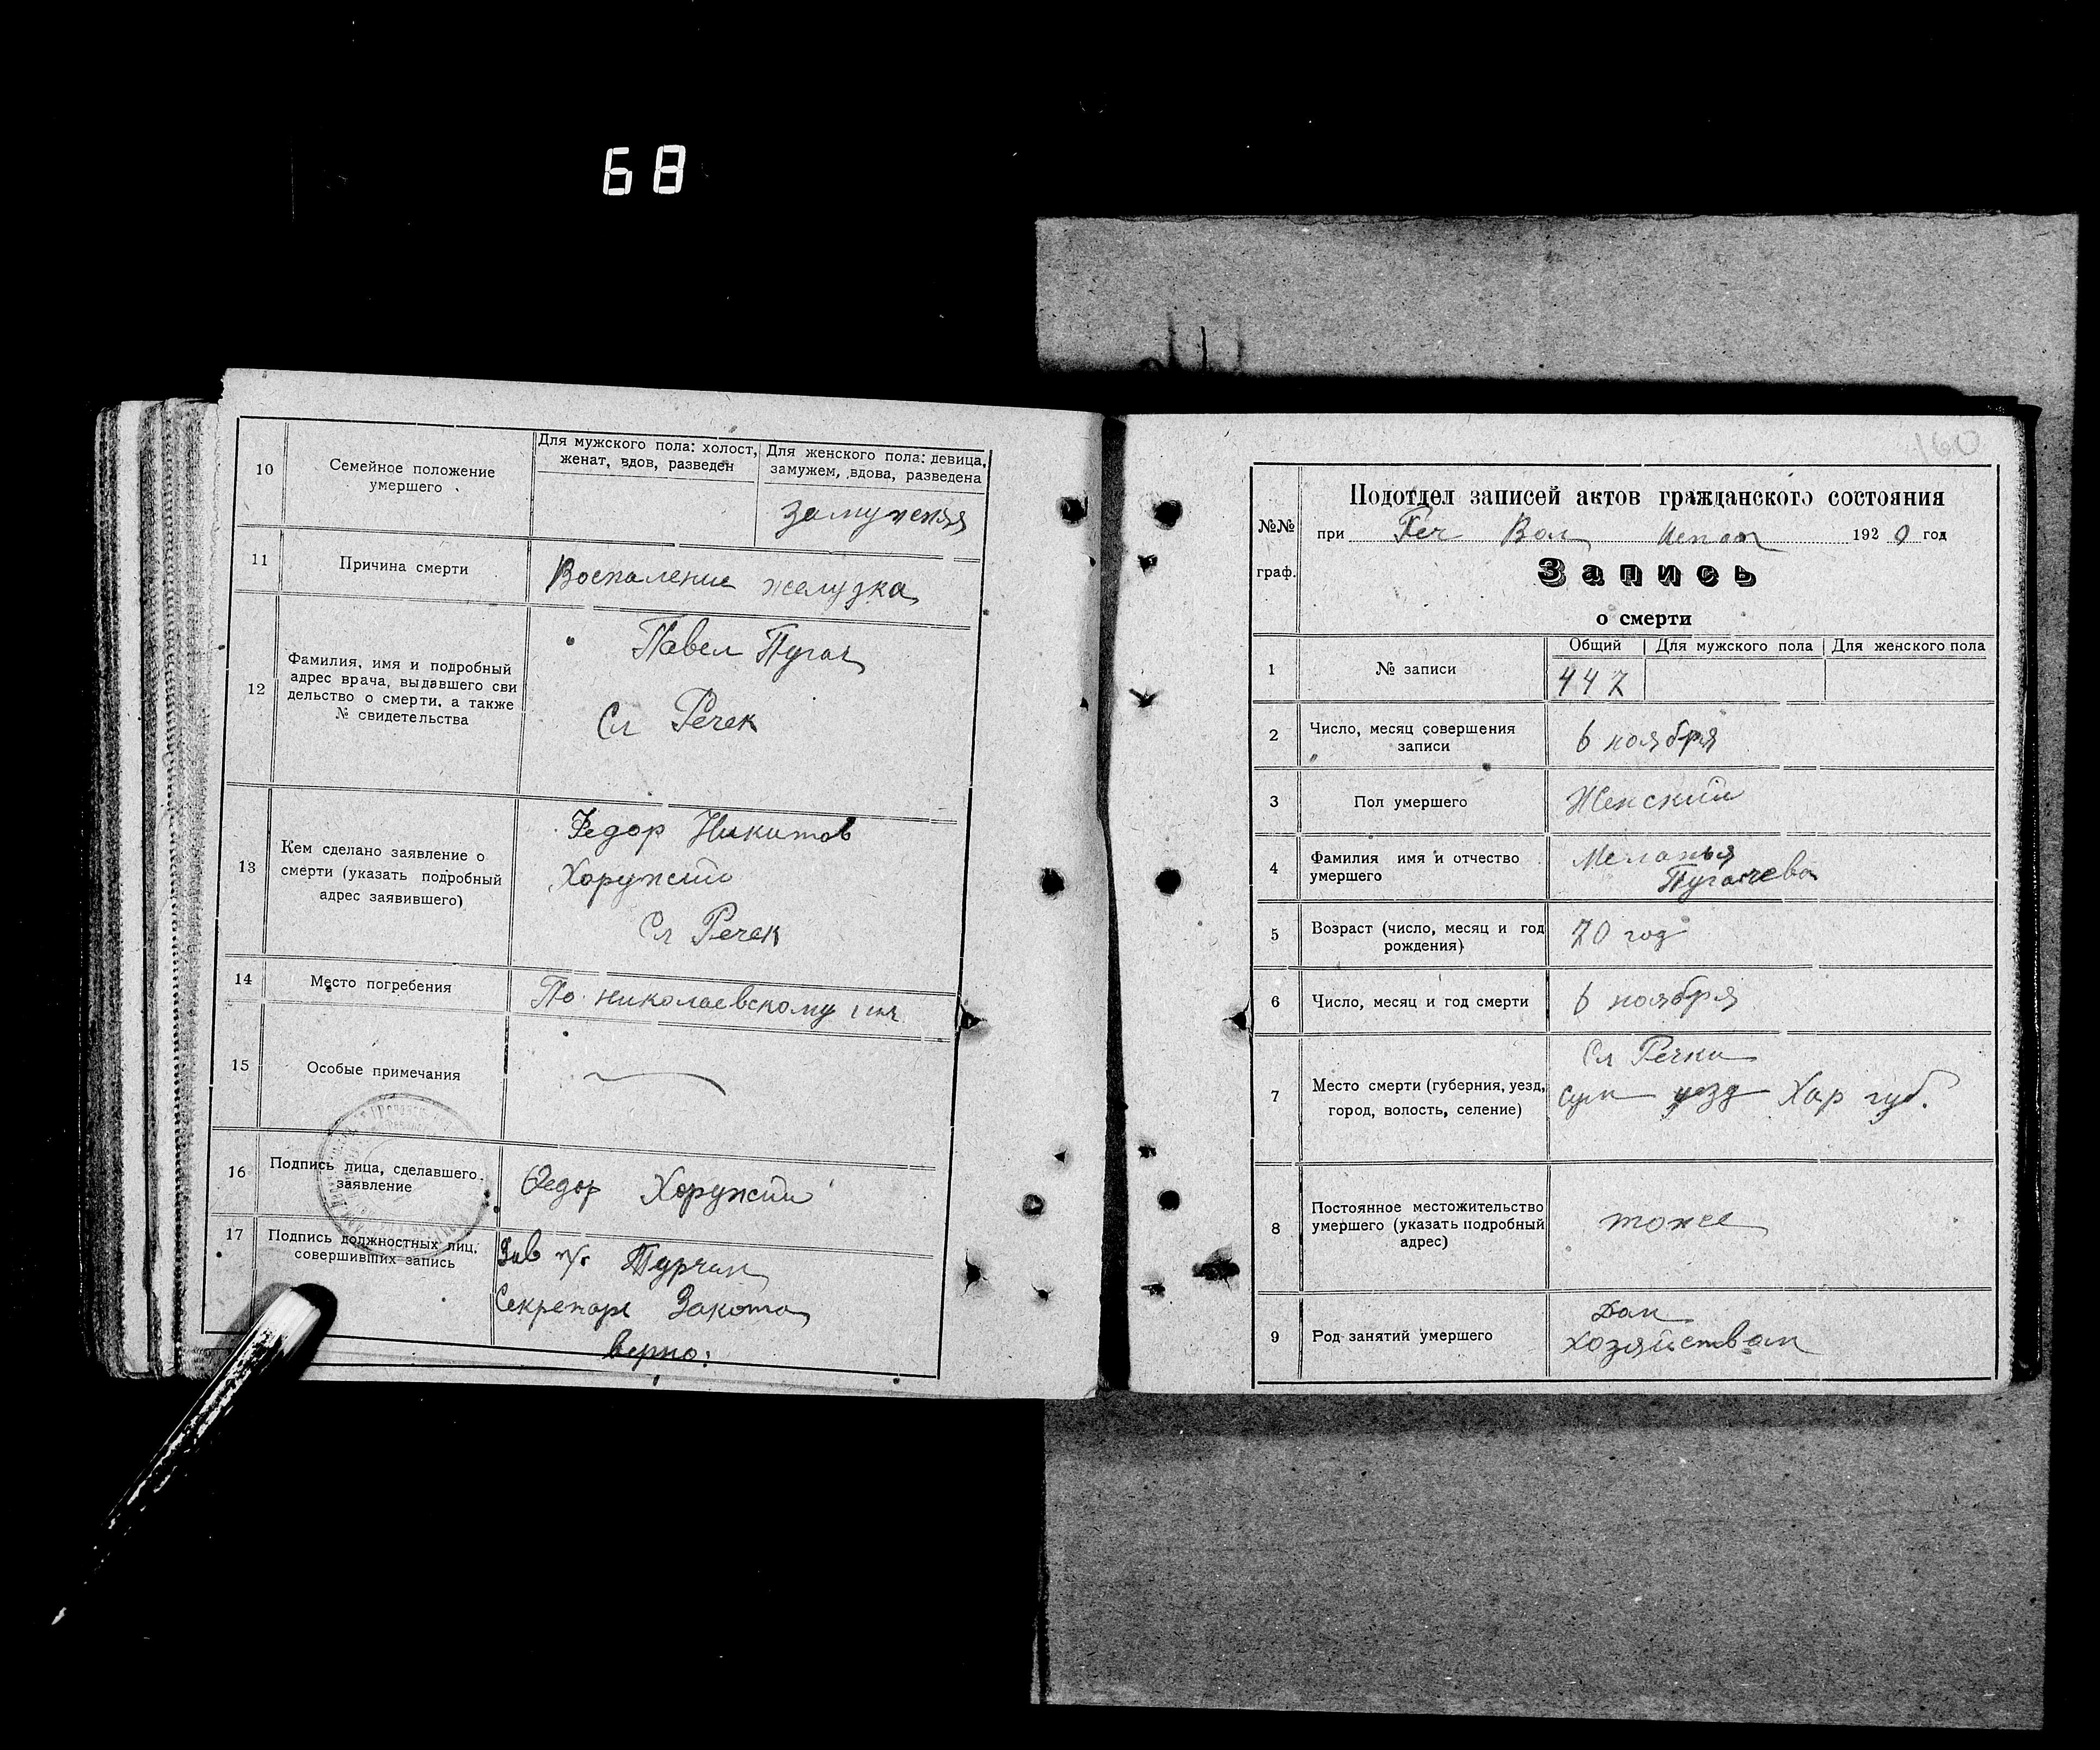 68
10
Семейное положение
умершего
Для мужского пола: холост,
женат, вдов, разведен
Для женского пола: девица,
замужем, вдова, разведена
Замужняя
11
Причина смерти
Воспаление желудка
12
Фамилия, имя и подробный
адрес врача, выдавшего сви
дельство о смерти, а также
№ свидетельства
Павел Пугач
Сл Речек
13
Кем сделано заявление о
смерти (указать подробный
адрес заявившего)
Федор Никитов
Хоружий
Сл Речек
14
Место погребения
По Николаевскому
15
Особые примечания
16
Подпись лица, сделавшего
заявление
Федор Хоружий
17
Подпись должностных лиц,
совершивших запись
Зав п/о Турчин
Секретарь Закота
верно:
160
№№
граф.
Подотдел записей актов гражданского состояния
при Реч Вол Испол 1920 год
Запись
о смерти
1
№ записи
Общий
Для мужского пола
Для женского пола
447
2
Число, месяц совершения
записи
6 ноября
3
Пол умершего
Женский
4
Фамилия имя и отчество
умершего
Меланья
Пугачева
5
Возраст (число, месяц и год
рождения)
70 год
6
Число, месяц и год смерти
6 ноября
7
Место смерти (губерния, уезд,
город, волость, селение)
Сл Речки
Сум уезд Хар губ.
8
Постоянное местожительство
умершего (указать подробный
адрес)
тоже
9
Род занятий умершего
Дом
хозяйством